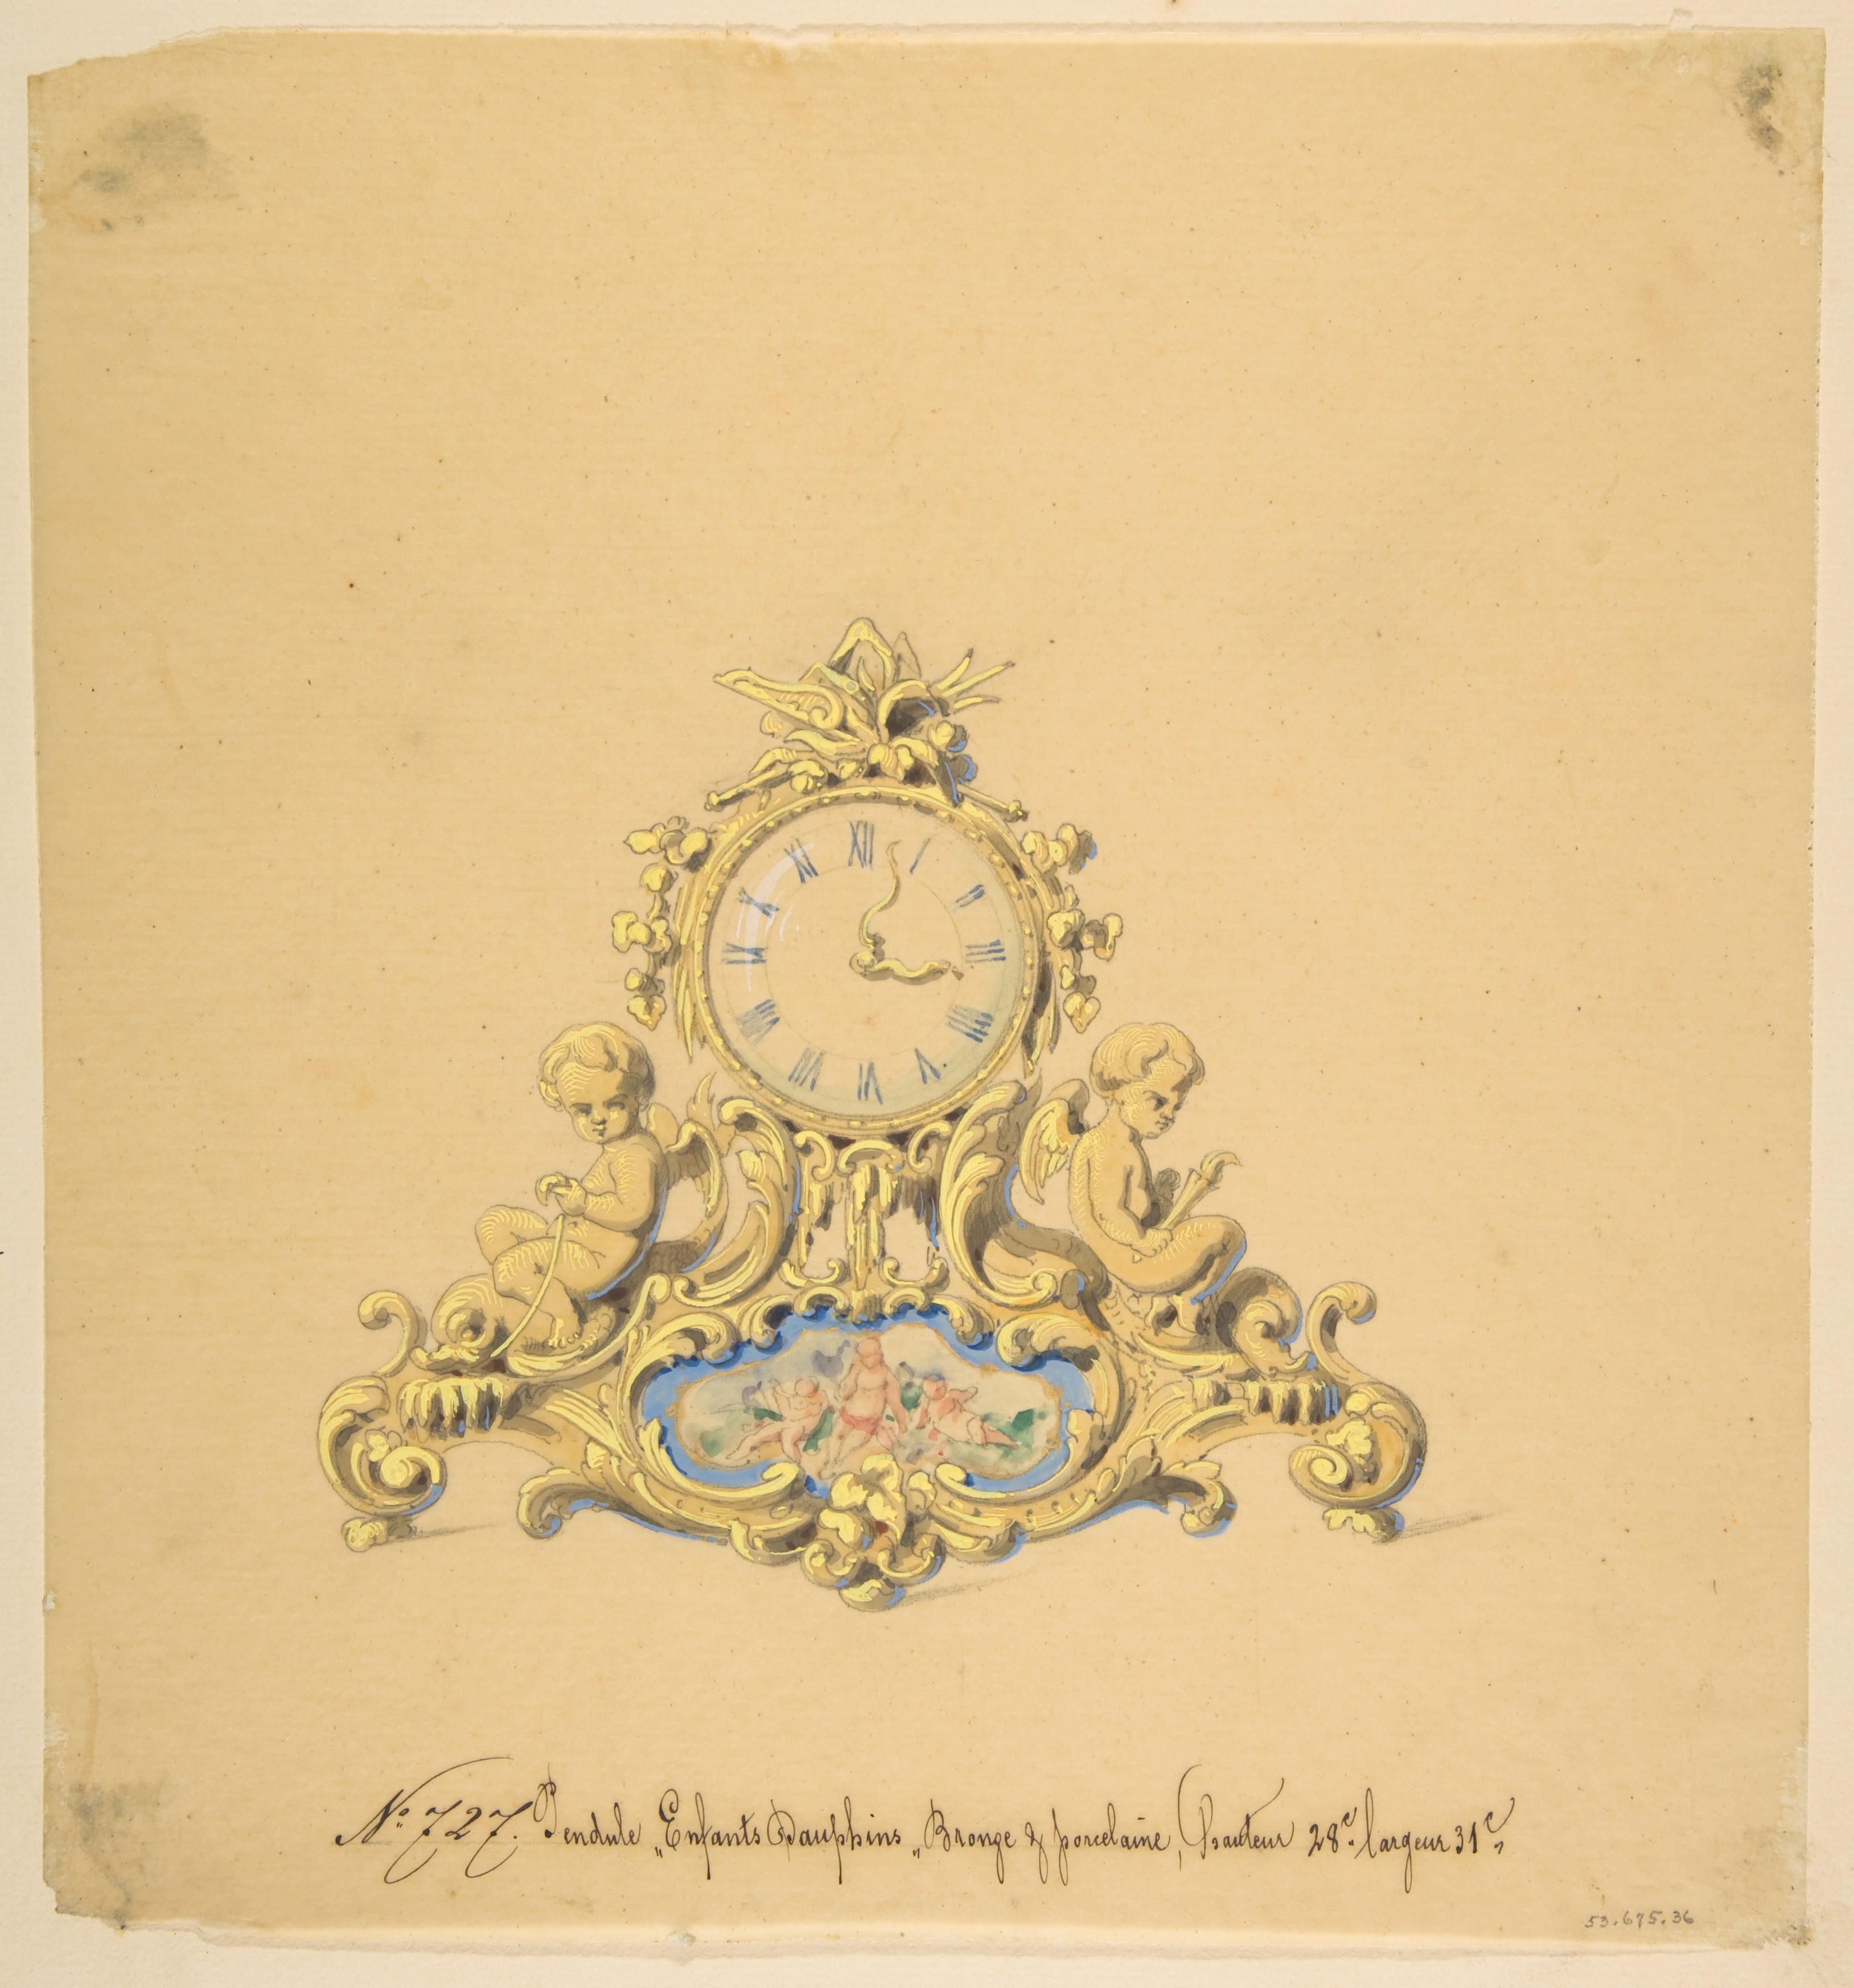 XII
I
II
III
IIII
V
VI
VII
VIII
IX
X
XI
No 727. Pendule „Enfants Dauphins„ Bronze & porcelaine, (hauteur 28c. largeur 31c„
53.675.36